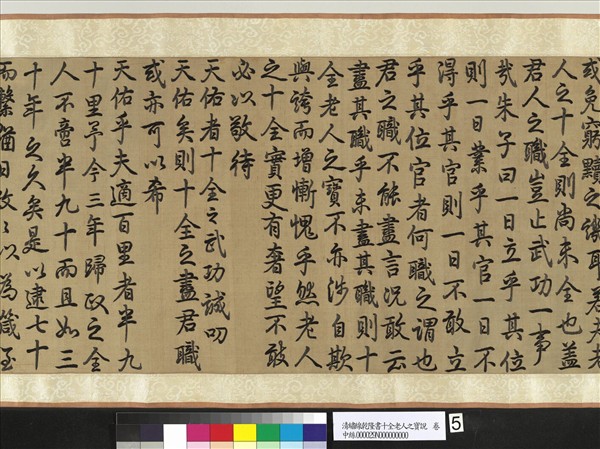 或免窮黷之譏耳若夫老
人之十全則尚未全也蓋
君人之職豈止武功一事
哉朱子曰一日立乎其位
則一日業乎其官一日不
得乎其官則一日不敢立
乎其位官者何職之謂也
君之職不能盡言況敢云
盡其職乎未盡其職則十
全老人之寶不亦涉自欺
與誇而增慚愧乎然老人
之十全實更有奢望不敢
必以敬待
天佑者十全之武功誠叨
天佑矣則十全之盡君職
或亦可以希
天佑乎夫適百里者半九
十里予今三年歸政之全
人不啻半九十而且如三
十年之久矣是以逮七十
而繫猶日孜々以為箴至
清緙絲乾隆書十全老人之寶說 卷
中絲000029N000000000
5